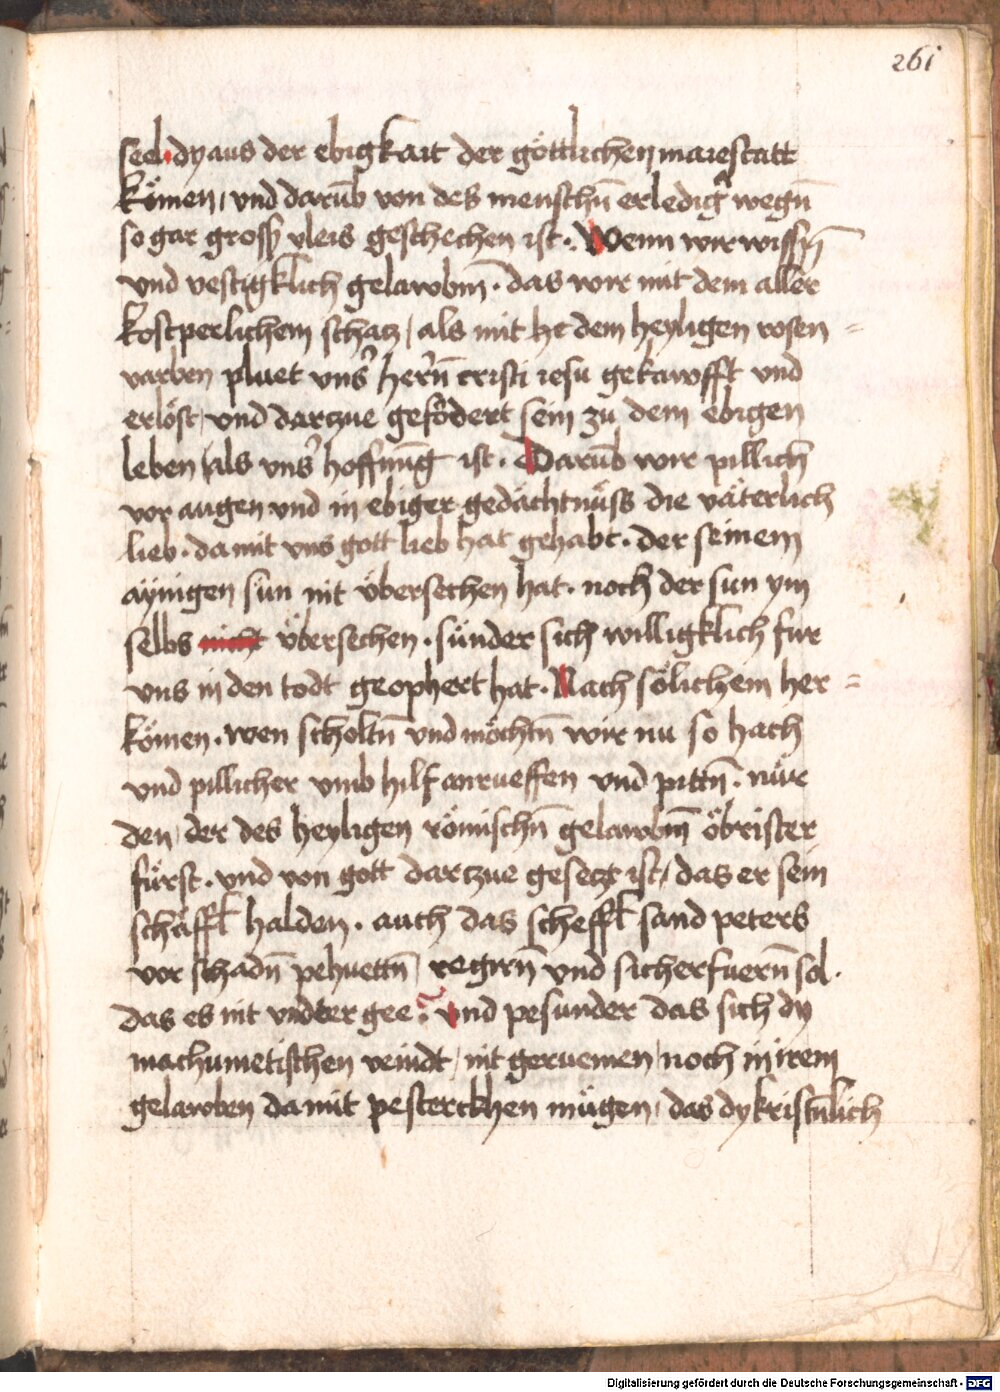 261
seel dy aus der ebigkait der göttlichen maiestatt
kömen, und darūb von des menschn̄ erledig̃ wegn̄
so gar grossz vleis geschechen ist. Wenn wir wissn̄
und vestigklich gelawbm̄. das wir mit dem aller
kostperlichem schatz / als mit dem heyligen rosen =
varben pluet unsʼ herʼn̄ cristi iesu gekawfft und
erlöst, und darzue gefödert sein zu dem ebigen
leben / als unsʼ hoffnūg ist. Darūb wir pillich
vor augen und in ebiger gedächtnüss die väterlich
lieb. damit uns gott lieb hat gehabt. der seinem
aÿnigen sün nit übersechen hat. noch der sun ym
selbs nicht übersechen. sünder sich willigklich fur
uns in den todt geophert hat. Nach sölichem her =
kömen. wen scholtn̄ und möchtn̄ wir nu so hach
und pillicher umb hilf anrueffen und pittn̄. nür
den, der des heyligen römischn̄ gelawbm̄ öbrister
fürst. und von gott darzue gesetzt ist, das er sein
schäffl halden. auch das scheffl sand peters
vor schadn̄ pehuettn̄, regirn̄ und sicher fuern̄ sol.
das es nit undter gee. Und pesunder das sich dy
machumetischen veindt, nit geruemen, noch in irem
gelawben damit pesterckhen mügen, das dy kristn̄lich
Digitalisierung gefördert durch die Deutsche Forschungsgemeinschaft - DFG